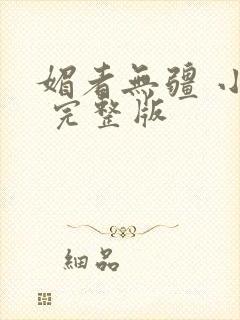 媚者無疆 小
完整版
細品